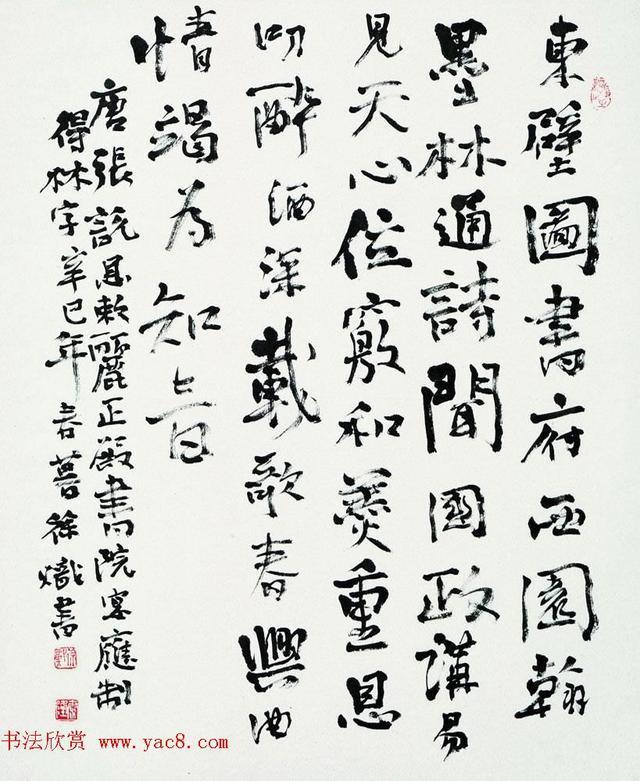 東壁圖書府西園翰
墨林通詩聞國政講易
見天心位竅和羹重恩
叨醉酒深載歌春興曲
情竭为知音
唐張説恩敕麗正殿書院宴應制
得林字辛巳年春暮徐熾書
书法欣赏 www.yac8.com